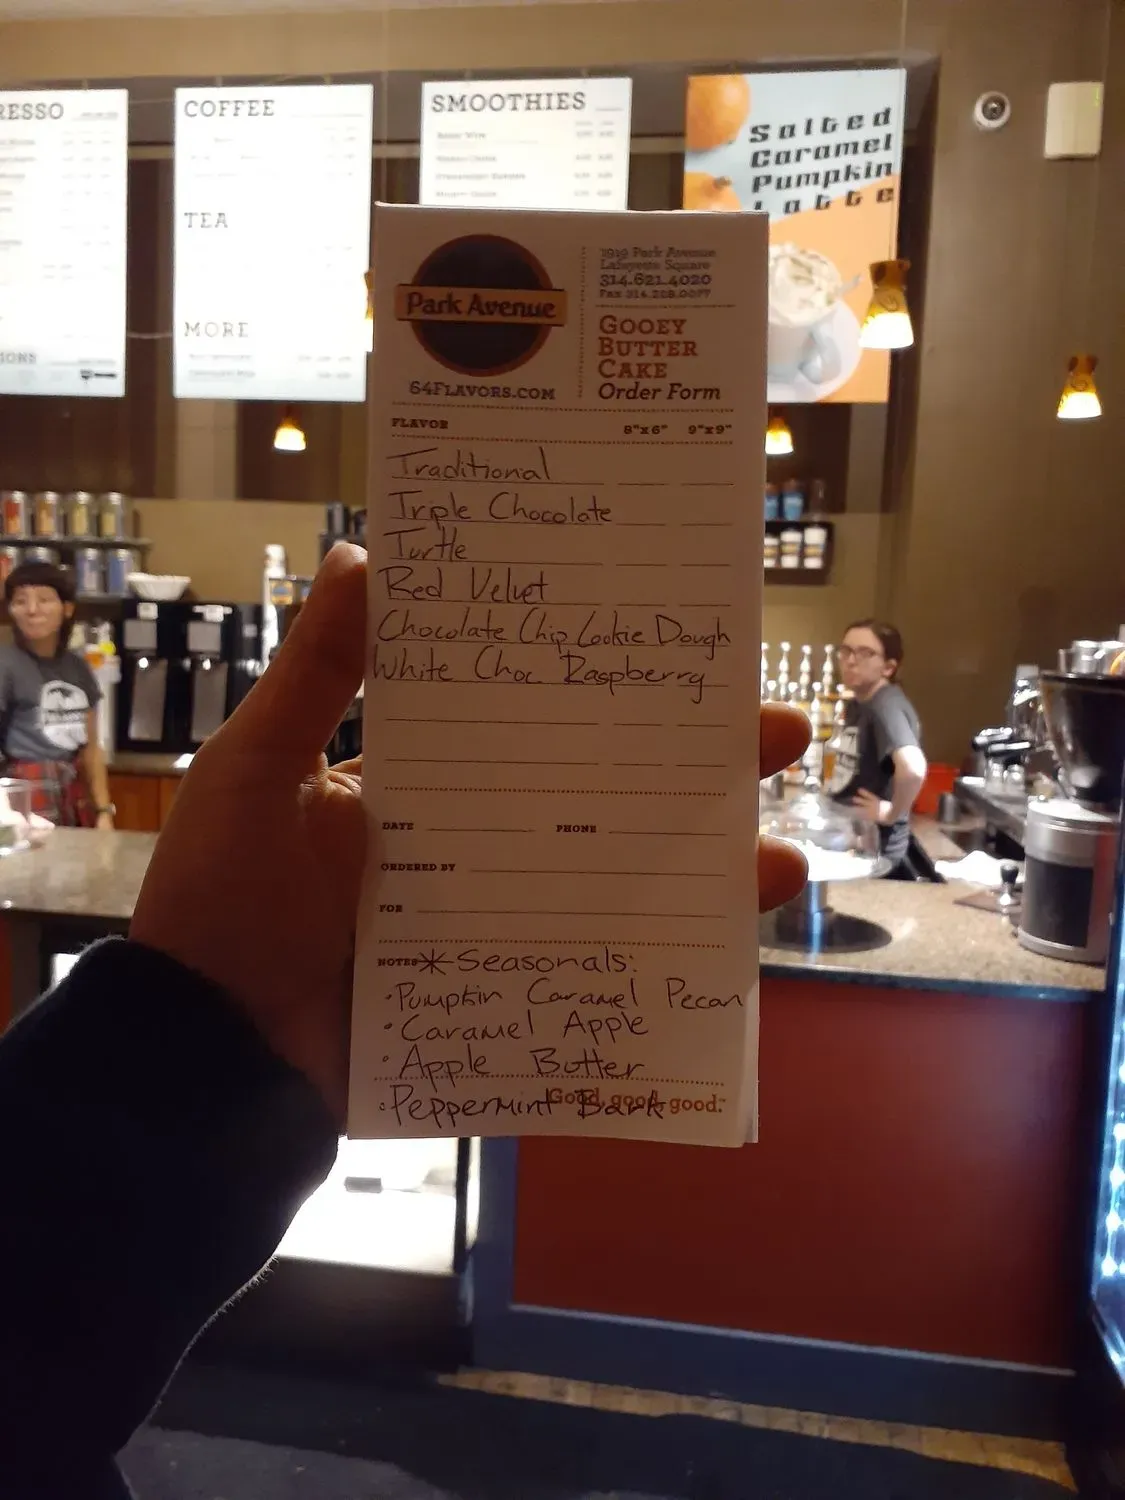 RESSO
COFFEE
TEA
MORE
SMOOTHIES
Salted
Caramel
Pumpkin
Latte
Park Avenue
64Flavors.com
1919 Park Avenue
Lafayette Square
314.621.4020
Fax 314.208.0077
Gooey
Butter
Cake
Order Form
FLAVOR 8"x6" 9"x9"
Traditional
Triple Chocolate
Turtle
Red Velvet
Chocolate Chip Cookie Dough
White Choc Raspberry
DATE PHONE
ORDERED BY
FOR
NOTES * Seasonals:
• Pumpkin Caramel Pecan
• Caramel Apple
• Apple Butter
• Peppermint Bark
Good, good, good.